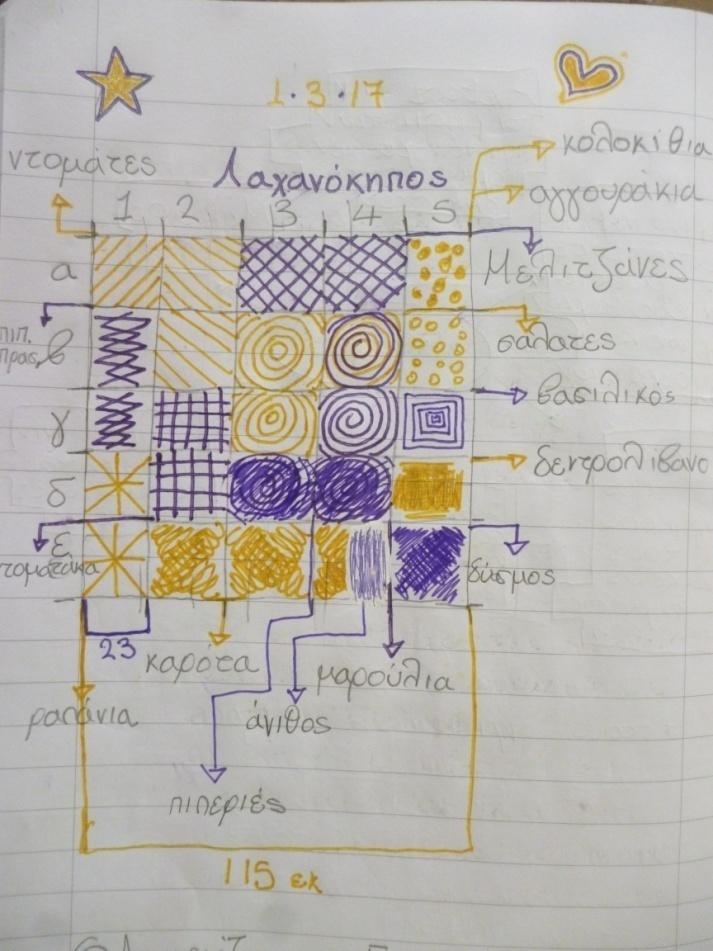 1.3.17
κολοκίθια
ντομάτες
Λαχανόκηπος
αγγουράκια
1 2 3 4 5
α
Μελιτζάνες
πιπ.
β
σαλατες
βασιλικός
γ
δεντρολιβανο
δ
ε
τοματάκια
δύσμος
23
καρότα
μαρούλια
ραπάνια
άνιθος
πιπεριές
115 εκ